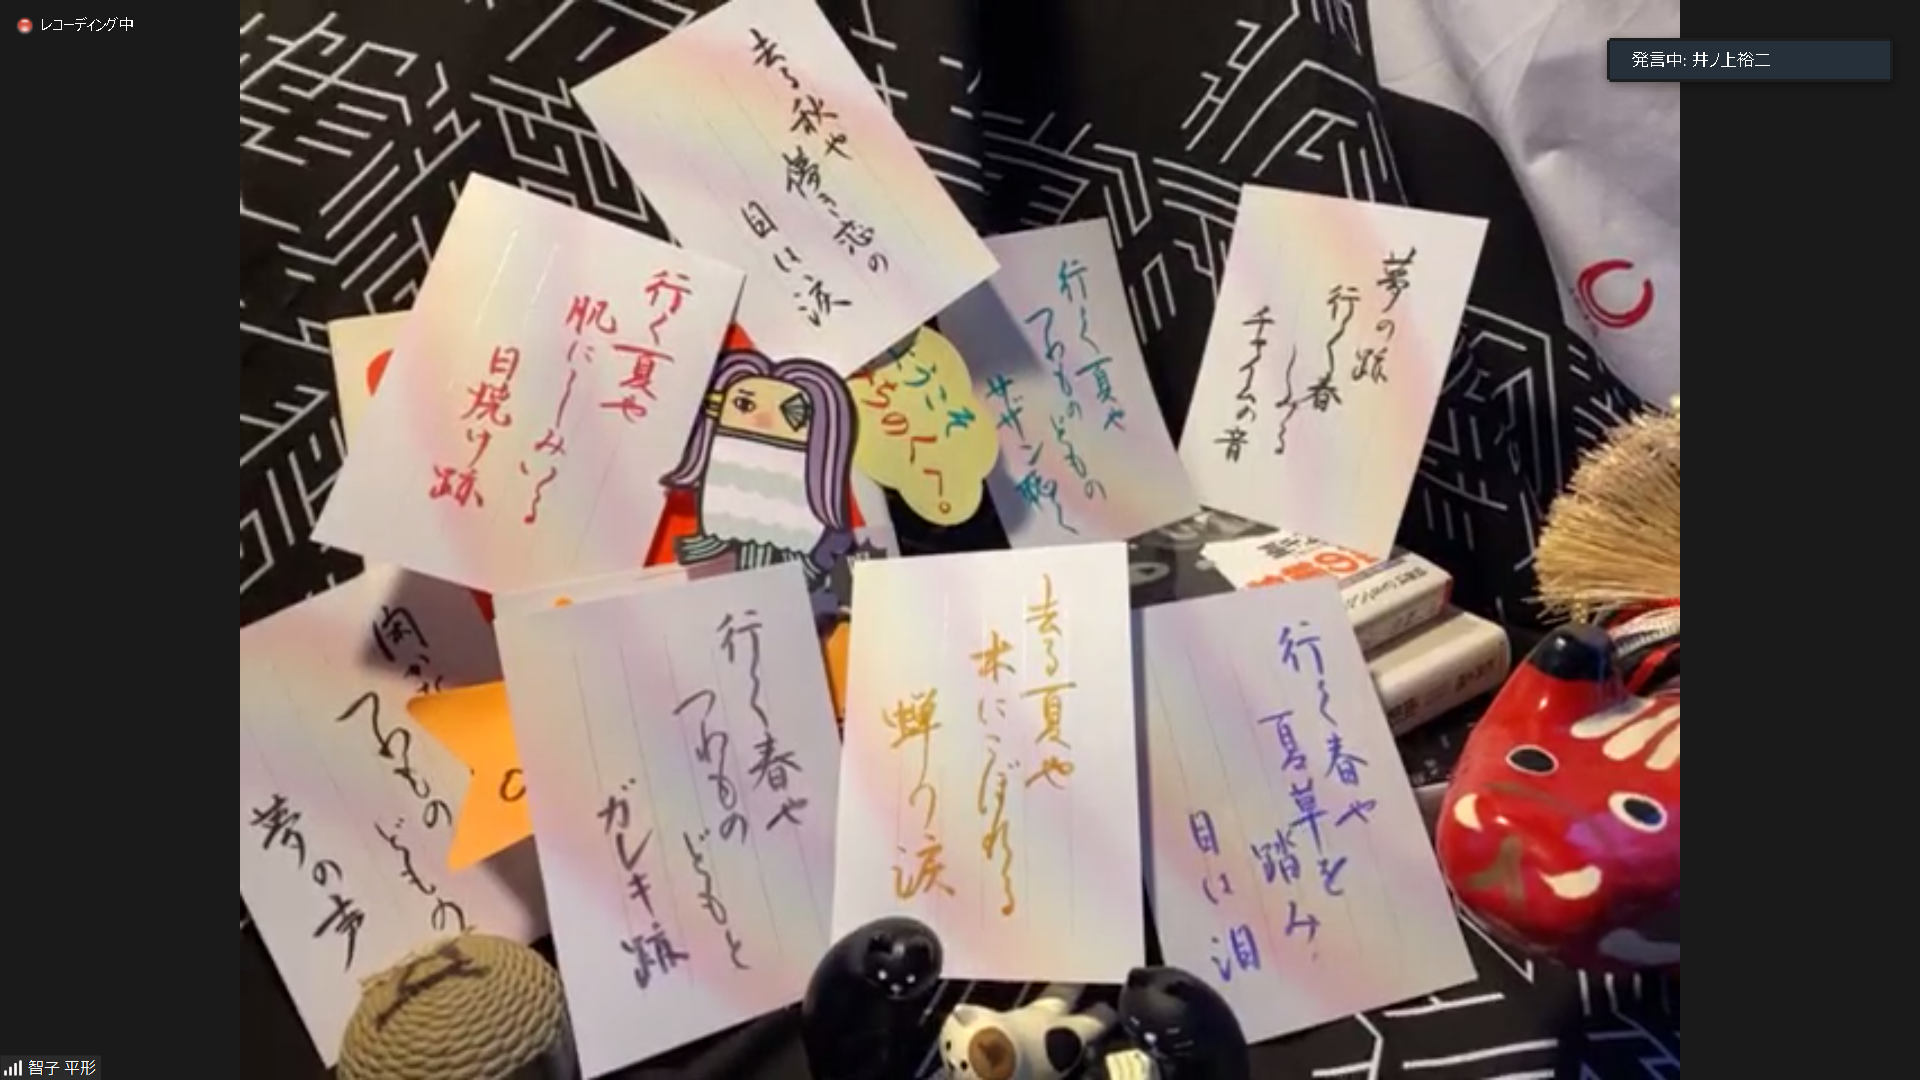 レコーディング中
発言中: 井ノ上裕二
去る秋や
儚き恋の
目は涙
行く夏や
肌にしみいる
日焼け跡
ようこそ
行く夏や
つわものどもの
サザン
夢の跡
行く春
しみる
チャイムの音
つわもの
どもの
夢の声
行く春や
つわもの
どもと
ガレキ跡
去る夏や
木にこぼれる
蝉の涙
行く春や
夏草を
踏み
目は泪
智子 平形